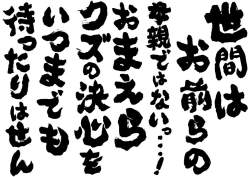 世間は
お前らの
母親ではないっ…!
おまえら
クズの決心を
いつまでも
待ったりはせん